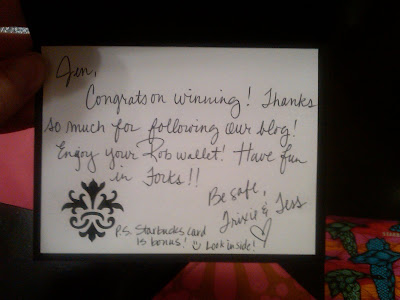 Jen,
Congrats on winning! Thanks
so much for following our blog!
Enjoy your Rob wallet! Have fun
in Forks!!
Be safe,
Trixie & Tess
P.S. Starbucks card
is bonus! Look inside!